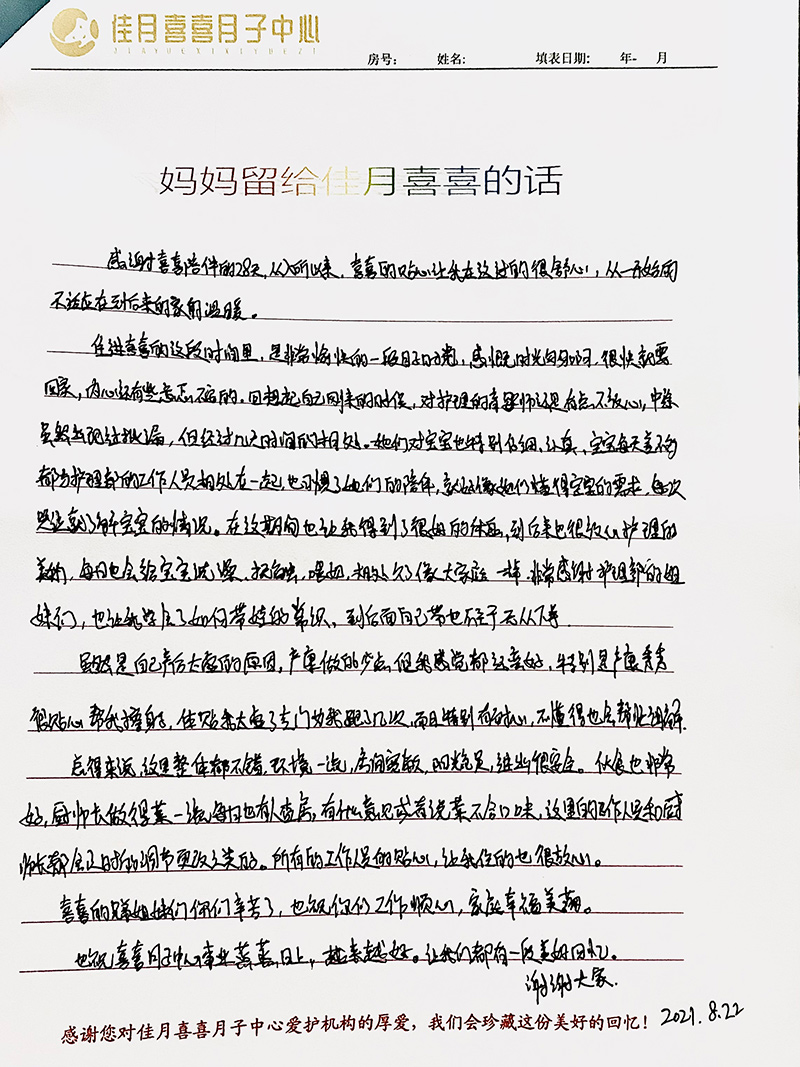 佳月喜喜月子中心
JIAYUEXIXIYUEZI
房号: 姓名: 填表日期: 年- 月
妈妈留给佳月喜喜的话
感谢对喜喜陪伴的28天,从入所以来,喜喜的贴心让我在这过的很舒心,从一开始的
不适应在到后来的家的温暖。
住进喜喜的这段时间里,是非常愉快的一段日子时光,感慨时光匆匆啊,很快就要
回家,内心还有些不舍的。回想起自己刚来的时候,对护理的专业师还是有点不放心,中途
虽然出现过,但经过几天时间的相处。她们对宝宝也特别仔细,认真,宝宝每天差不多
都与护理部的工作人员相处在一起,也习惯了她们的陪伴,就好像她们懂得宝宝的需求,每次
哭这就了解宝宝的情况。在这期间也让我得到了很好的休息,到后来也很放心护理的
美妈,每日也会给宝宝洗澡,喂奶,大家庭一样.非常感谢护理部的姐
妹们,也让我学会了如何带娃的常识,到后面自己带也不至于无从下手
虽然是自己产后大虚的原因,产康做的少点,但我感觉都还蛮好,特别是产康秀秀
很贴心,帮我擦身子,体贴我太虚了专门为我跑了几次,而且特别有耐心,不懂得也会帮忙讲解.
总得来说,这里整体都不错,环境一流,房间宽敞,阳光充足,进出很安全。伙食也非常
好,厨师长做得菜一流,每日也有人查房,有什么意见或者说菜不合口味,这里的工作人员和厨
师长都会及时的调节更改之类的。所有的工作人员的贴心,让我住的也很放心。
喜喜的兄弟姐妹们你们辛苦了,也祝你们工作顺心,家庭幸福美满。
也祝喜喜月子中心事业蒸蒸日上,越来越好。让我们都有一段美好回忆。
谢谢大家.
2021.8.22
感谢您对佳月喜喜月子中心爱护机构的厚爱,我们会珍藏这份美好的回忆!